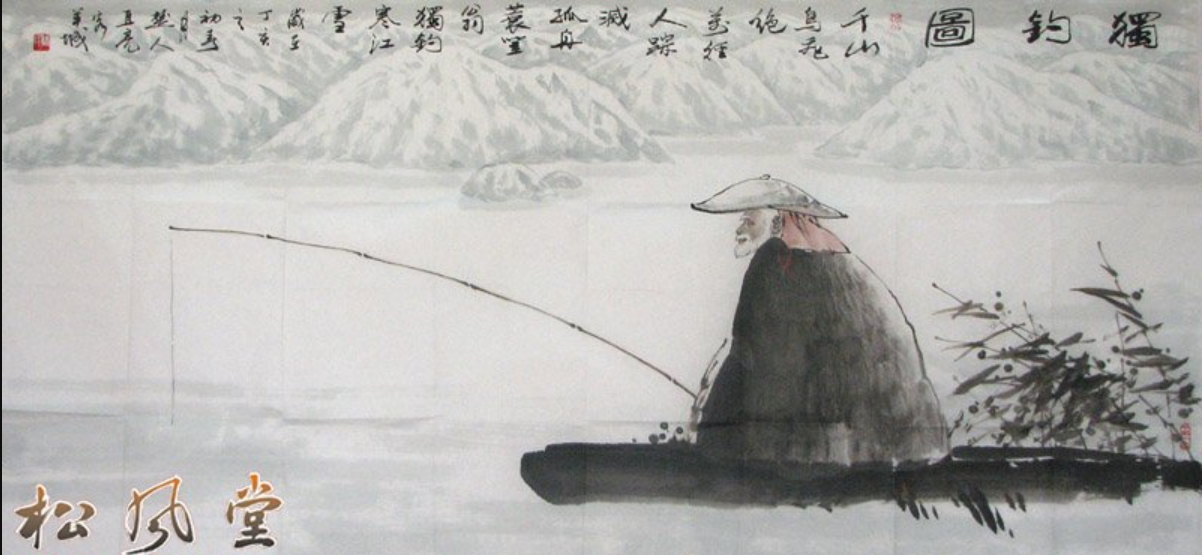 獨釣圖
千山
鳥飛
絶
萬徑
人踪
滅
孤舟
蓑笠
翁
獨釣
寒江
雪
歲在
丁亥
之
初春
楚人
客
羊城
松风堂